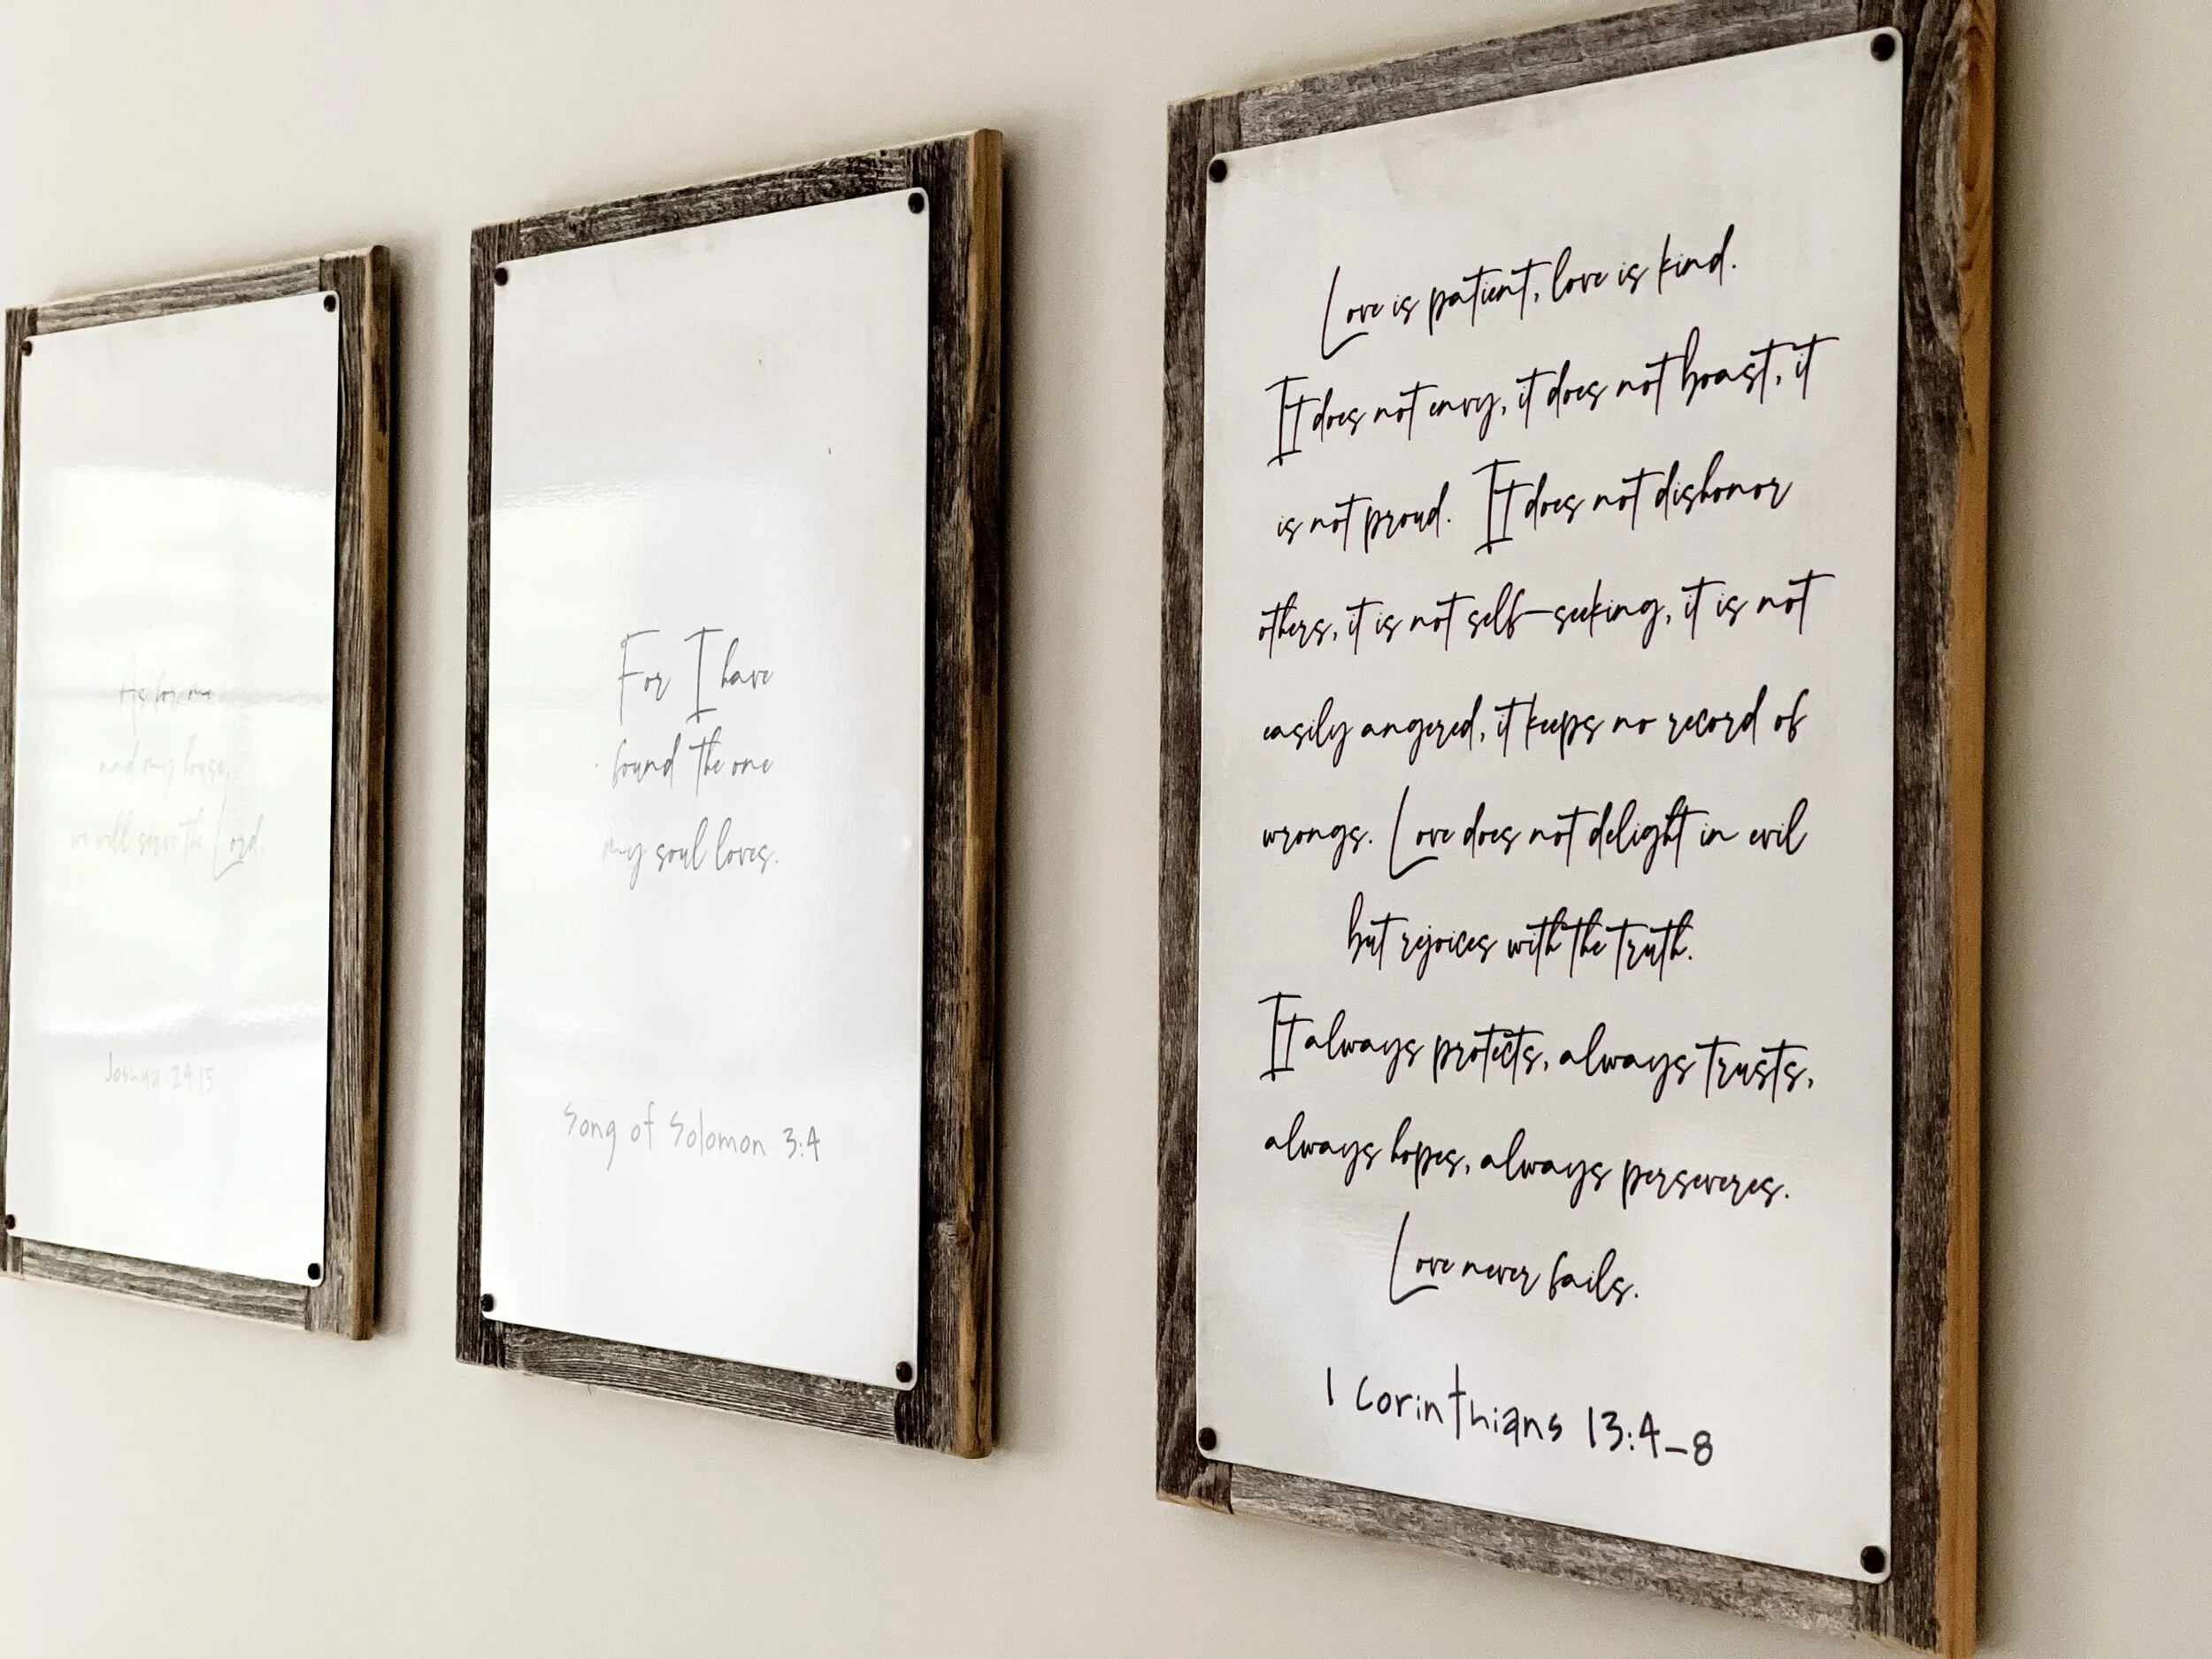 As for me
and my house,
we will serve the Lord.
Joshua 24:15
For I have
found the one
my soul loves.
Song of Solomon 3:4
Love is patient, love is kind.
It does not envy, it does not boast, it
is not proud. It does not dishonor
others, it is not self-seeking, it is not
easily angered, it keeps no record of
wrongs. Love does not delight in evil
but rejoices with the truth.
It always protects, always trusts,
always hopes, always perseveres.
Love never fails.
1 Corinthians 13:4-8